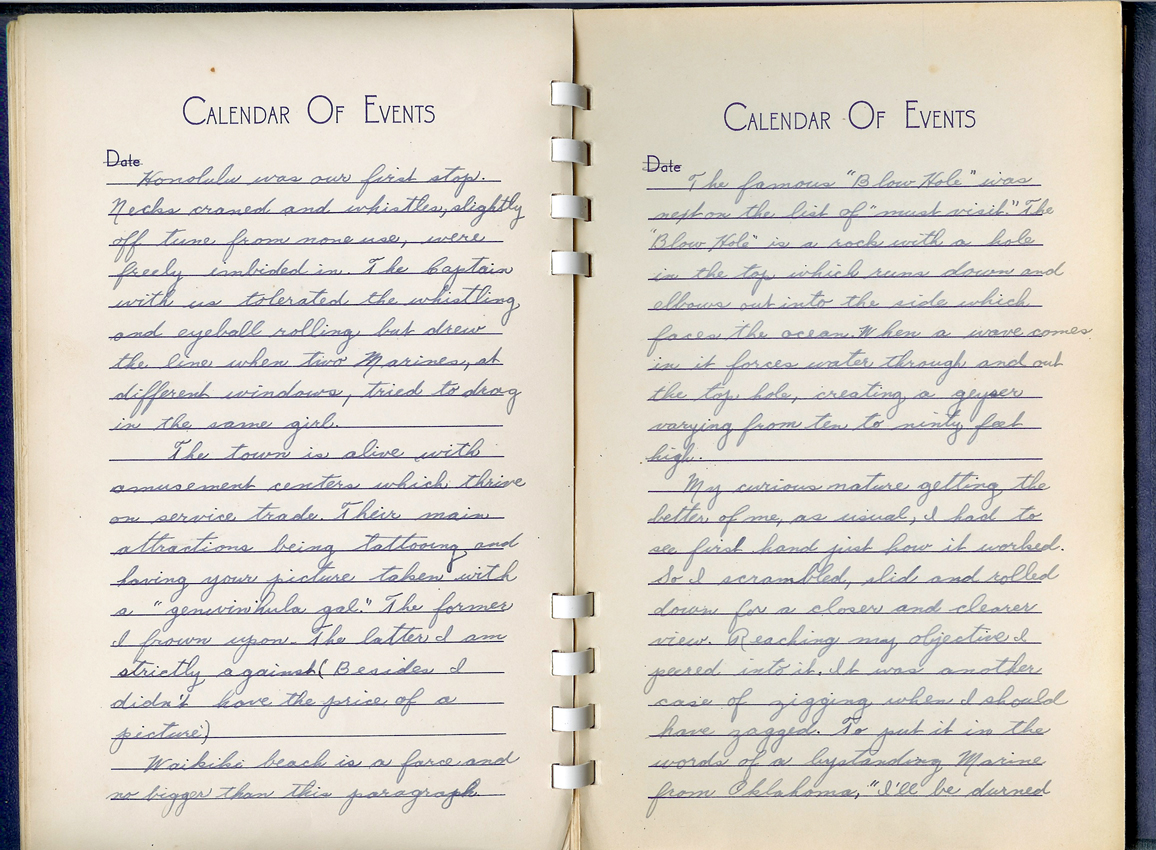 CALENDAR OF EVENTS
Date
Honolulu was our first stop.
Necks craned and whistles, slightly
off tune from none use, were
freely imbided in. The Captain
with us tolerated the whistling
and eyeball rolling but drew
the line when two Marines, at
different windows, tried to drag
in the same girl.
The town is alive with
amusement centers which thrive
on service trade. Their main
attractions being tattooing and
having your picture taken with
a "genuvin hula gal." The former
I frown upon. The latter I am
strictly against (Besides I
didn't have the price of a
picture)
Waikiki beach is a farce and
no bigger than this paragraph.
CALENDAR OF EVENTS
Date
The famous "Blow Hole" was
next on the list of "must visit." The
"Blow Hole" is a rock with a hole
in the top which runs down and
elbows out into the side which
faces the ocean. When a wave comes
in it forces water through and out
the top hole, creating a geyser
varying from ten to ninty feet
high.
My curious nature getting the
better of me, as usual, I had to
see first hand just how it worked.
So I scrambled, slid and rolled
down for a closer and clearer
view. Reaching my objective I
peered into it. It was another
case of zigging when I should
have zagged. To put it in the
words of a bystanding Marine
from Oklahoma, "I'll be durned